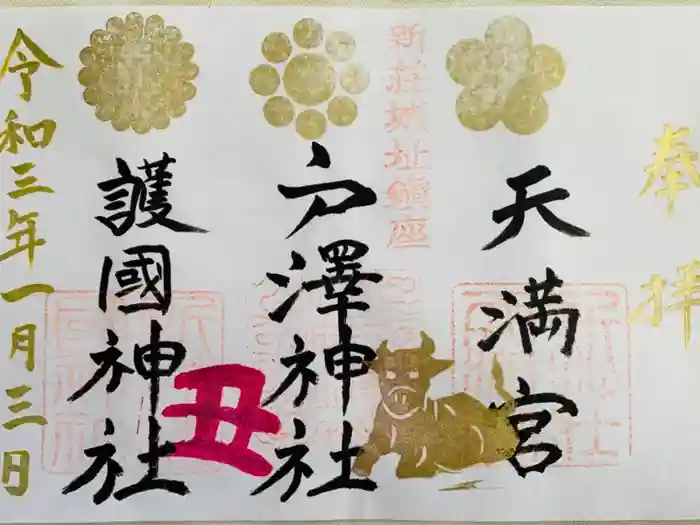 奉拝
天満宮
新荘城址鎮座
戸澤神社
護國神社
丑
令和三年一月三日